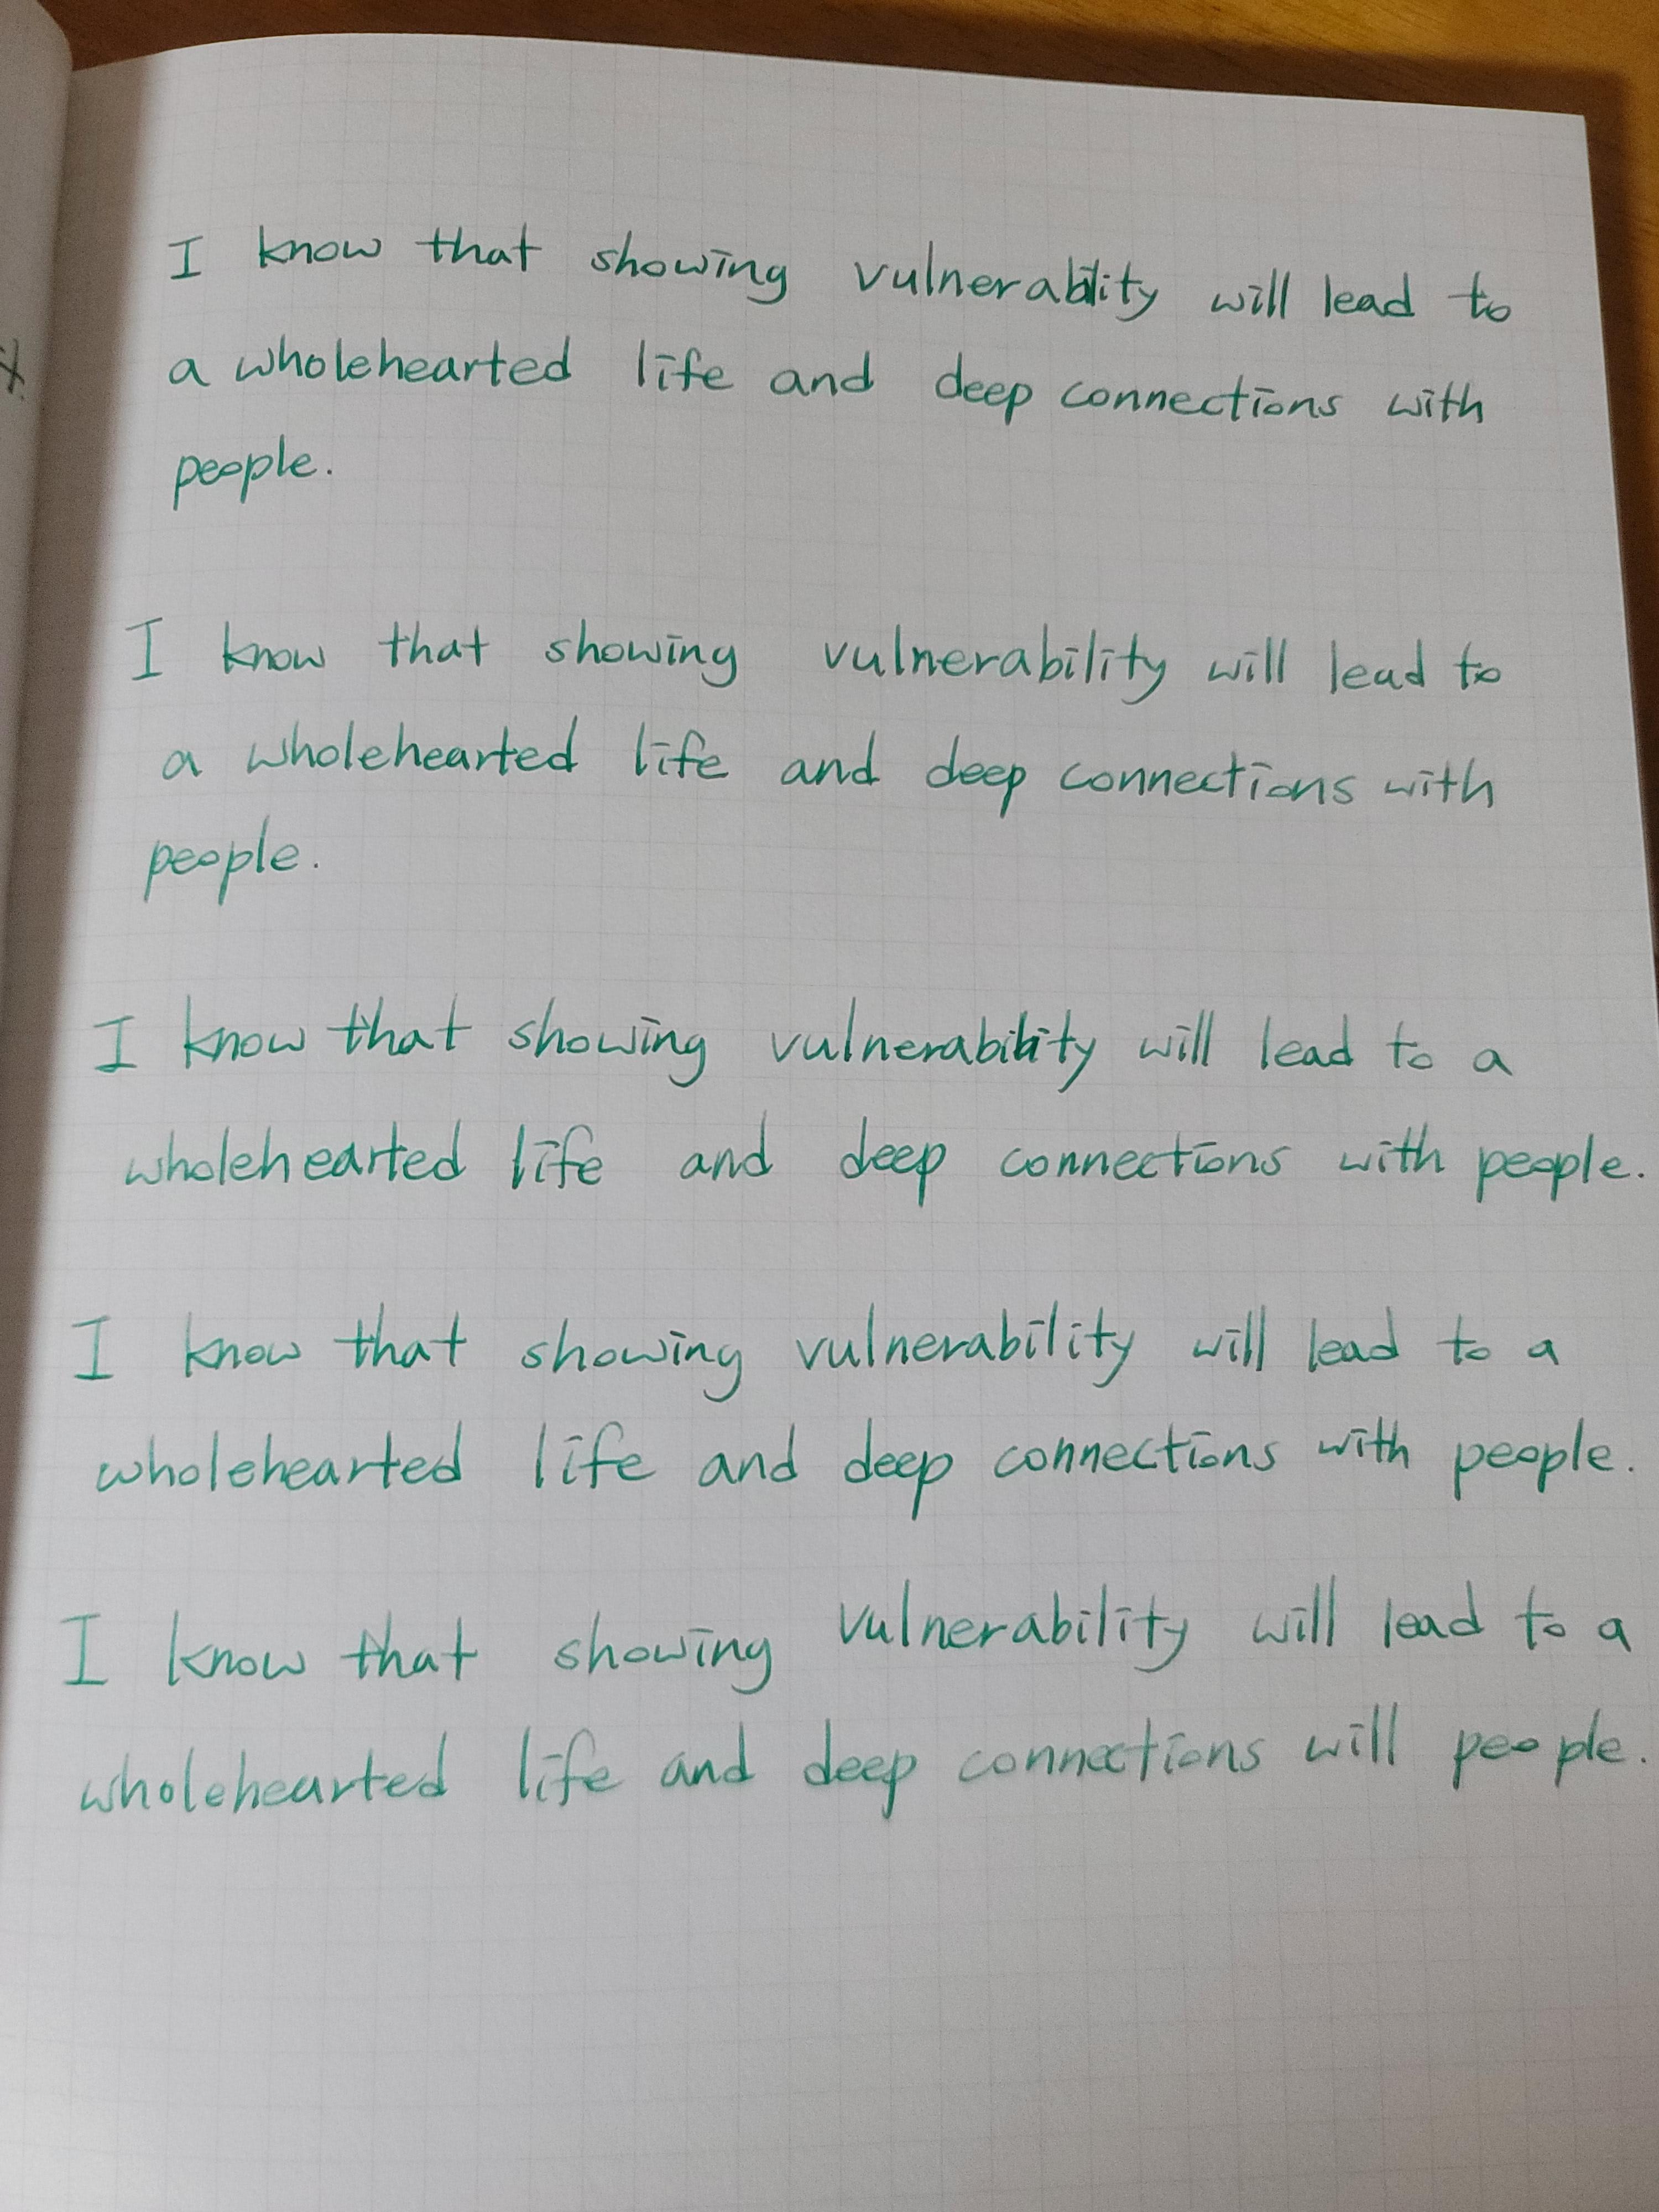 I know that showing vulnerability will lead to
a wholehearted life and deep connections with
people.
I know that showing vulnerability will lead to
a wholehearted life and deep connections with
people.
I know that showing vulnerability will lead to a
wholehearted life and deep connections with people.
I know that showing vulnerability will lead to a
wholehearted life and deep connections with people.
I know that showing vulnerability will lead to a
wholehearted life and deep connections will people.